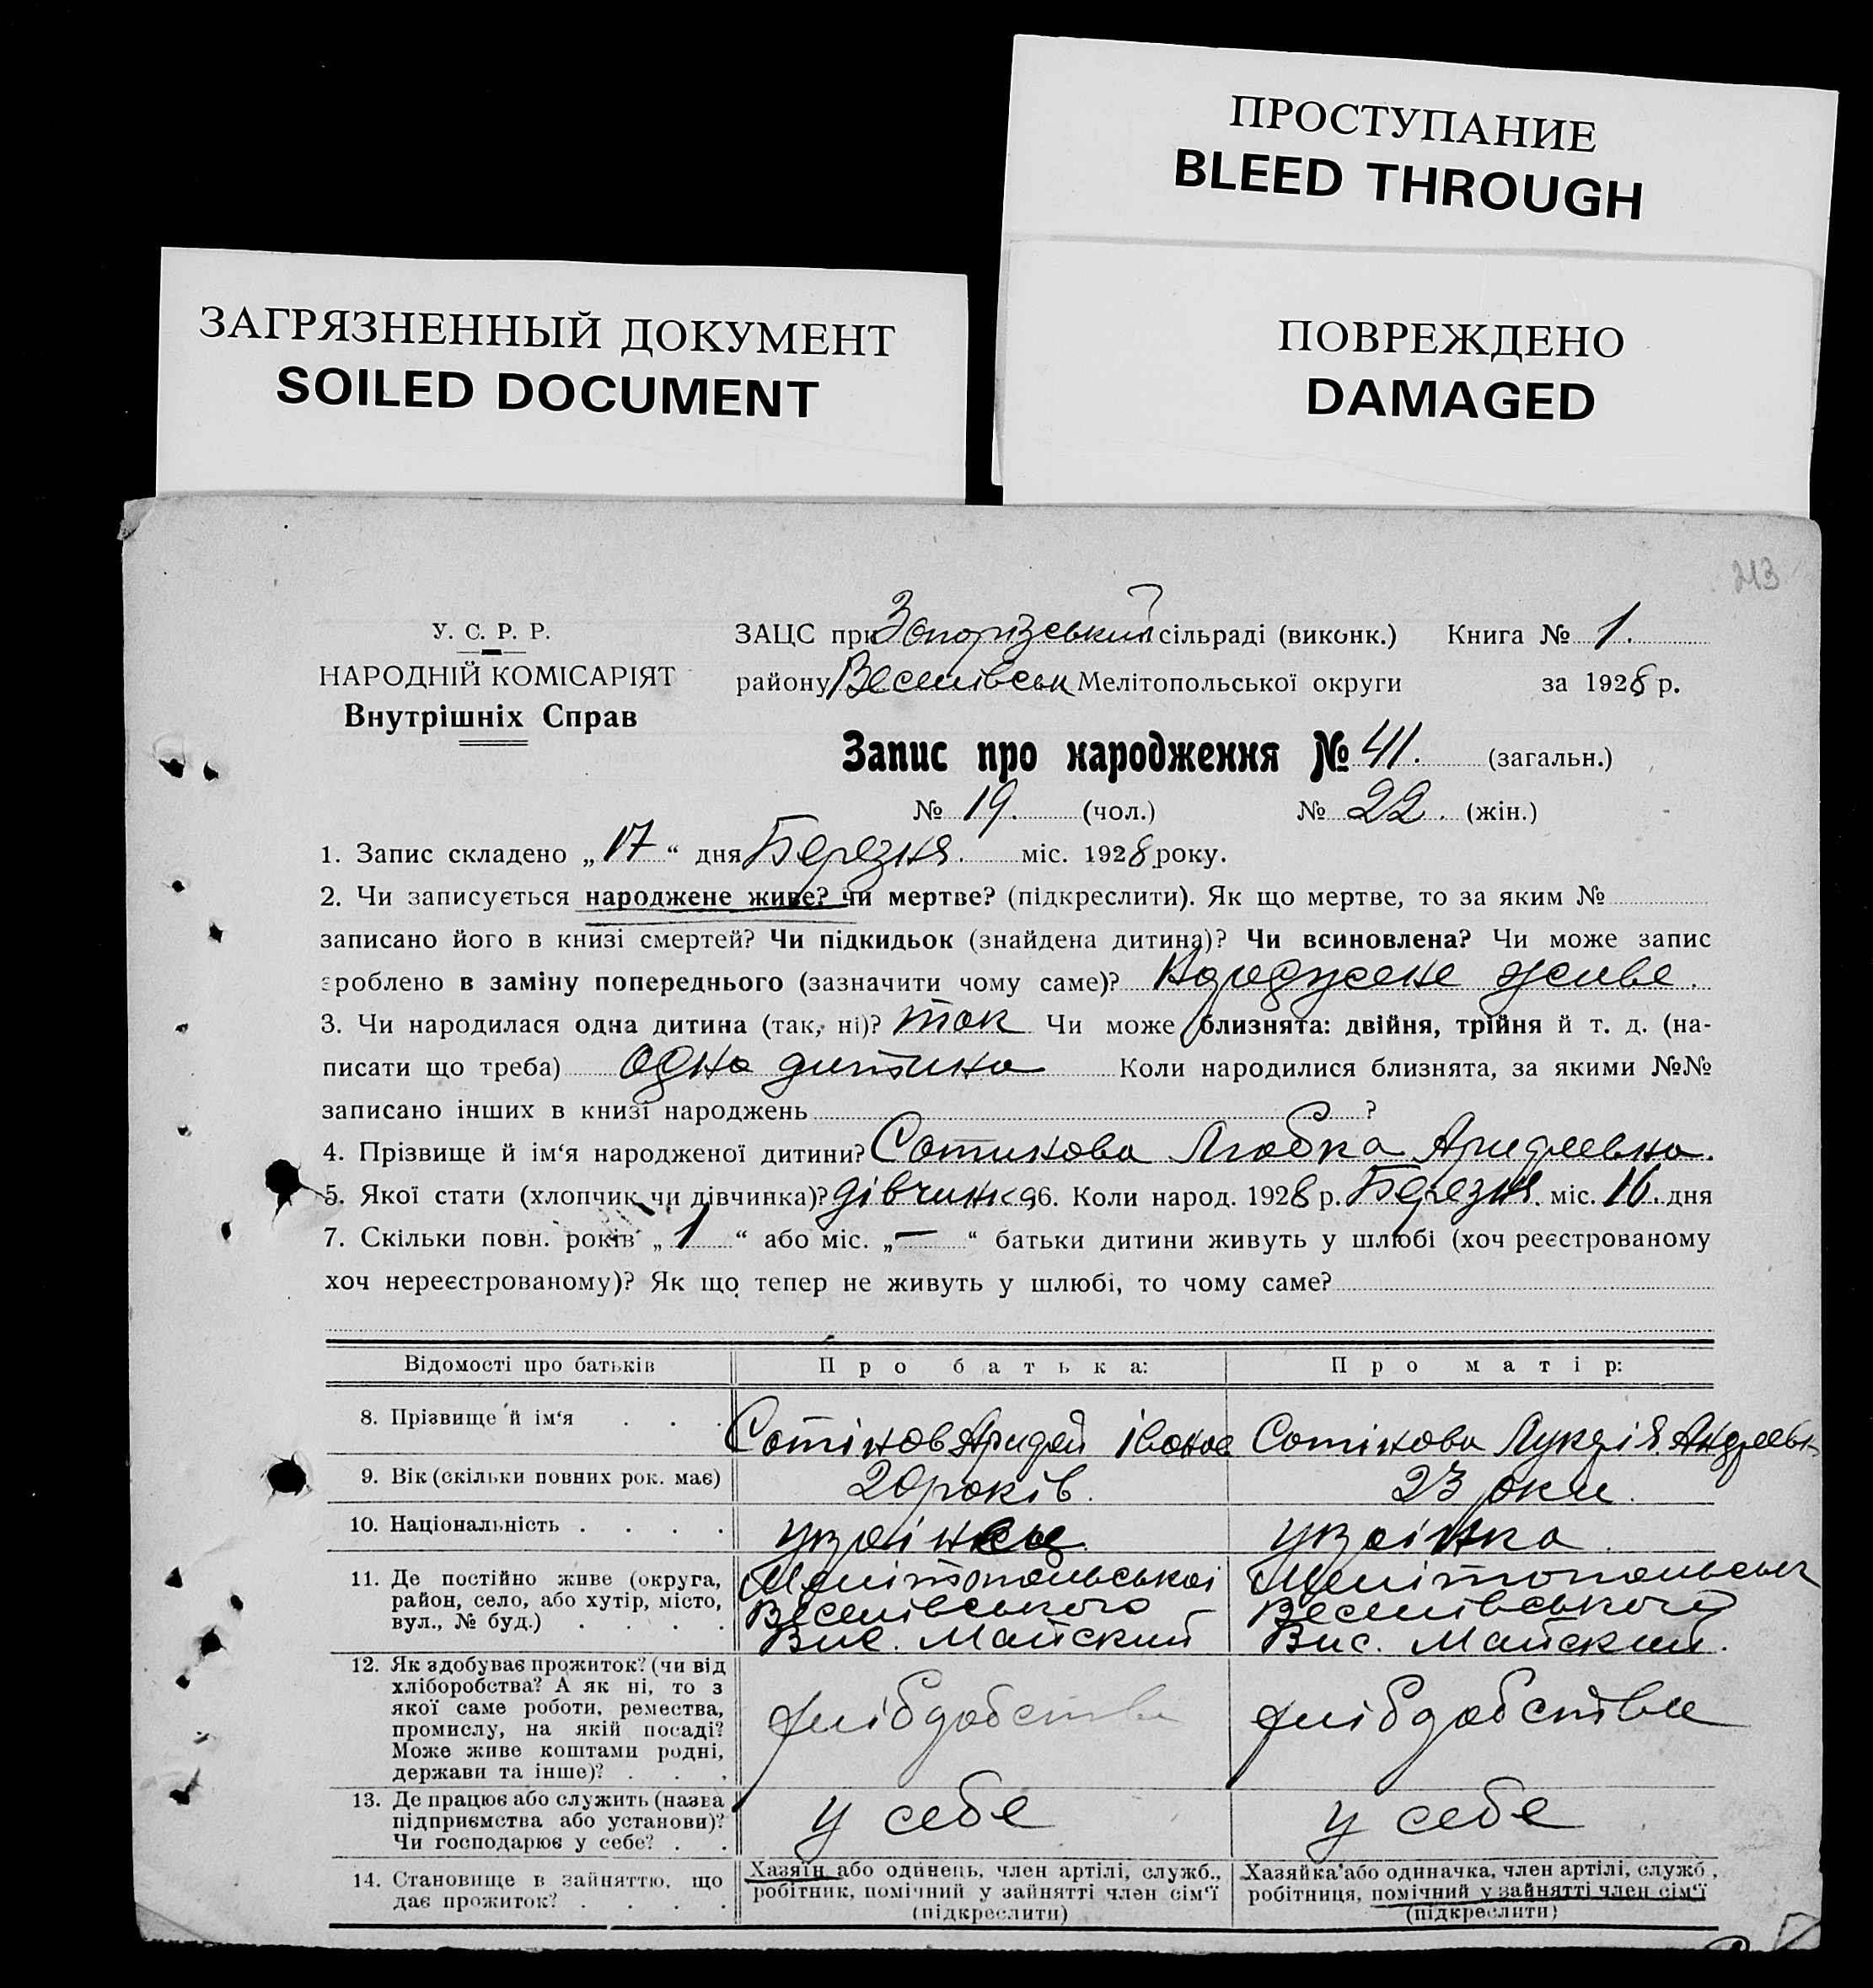 ПРОСТУПАНИЕ
BLEED THROUGH
ЗАГРЯЗНЕННЫЙ ДОКУМЕНТ
SOILED DOCUMENT
ПОВРЕЖДЕНО
DAMAGED
213
У. С. Р. Р.
НАРОДНІЙ КОМІСАРІЯТ
Внутрішніх Справ
ЗАЦС при Запорізський сільраді (виконк.) Книга № 1.
району Веселівськ Мелітопольської округи за 1928 р.
Запис про народження № 41. (загальн.)
№ 19. (чол.) № 22. (жін.)
1. Запис складено „17“ дня Березня. міс. 1928 року.
2. Чи записується народжене живе? чи мертве? (підкреслити). Як що мертве, то за яким №
записано його в книзі смертей? Чи підкидьок (знайдена дитина)? Чи всиновлена? Чи може запис
зроблено в заміну попереднього (зазначити чому саме)? Народжене живе.
3. Чи народилася одна дитина (так, ні)? так Чи може близнята: двійня, трійня й т. д. (на-
писати що треба) одна дитина Коли народилися близнята, за якими №№
записано інших в книзі народжень ?
4. Прізвище й ім‘я народженої дитини? Сотикова Любка
5. Якої стати (хлопчик чи дівчинка)? дівчинка 6. Коли народ. 1928 р. Березня. міс. 16. дня
7. Скільки повн. років „1“ або міс. „—“ батьки дитини живуть у шлюбі (хоч реєстрованому
хоч нереєстрованому)? Як що тепер не живуть у шлюбі, то чому саме?
Відомості про батьків Про батька: Про матір:
8. Прізвище й ім‘я . . . Сотіков Сотікова
9. Вік (скільки повних рок. має) 20 років. 23 роки.
10. Національність . . . . украінка.
11. Де постійно живе (округа, район, село, або хутір, місто, вул., № буд.) . . . .
Мелітопольськоі Мелітопольськ
Веселівського Веселівського
Вис. Майский Вис. Майский.
12. Як здобуває прожиток? (чи від
хліборобства? А як ні, то з
якої саме роботи, ремества,
промислу, на якій посаді?
Може живе коштами родні,
держави та інше)? . . .
13. Де працює або служить (назва
підприємства або установи)?
Чи господарює у себе? . . у себе у себе
14. Становище в зайняттю, що
дає прожиток? . . . .
Хазяїн або одинець, член артілі, служб.,
робітник, помічний у зайнятті член сім‘ї
(підкреслити)
Хазяйка або одиначка, член артілі, служб.,
робітниця, помічний у зайнятті член сім‘ї
(підкреслити)